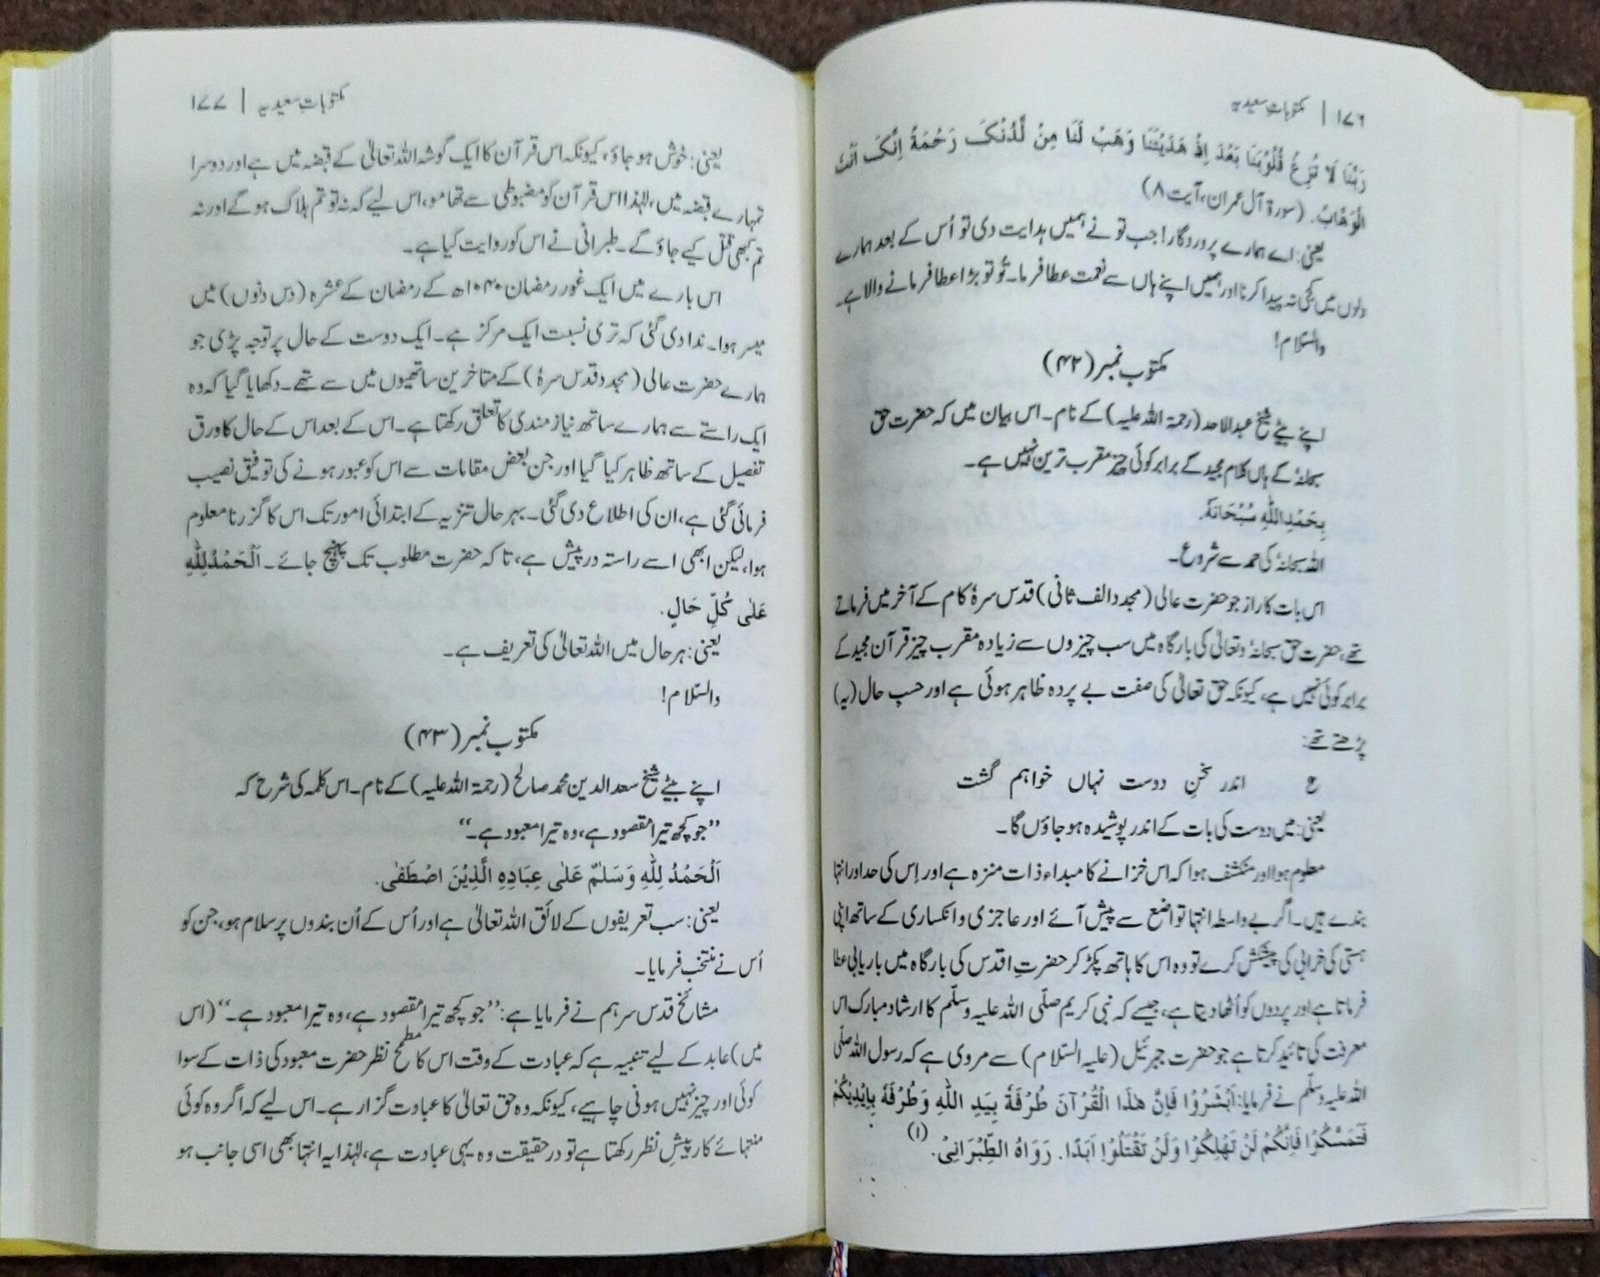 ۱۷۶ | مکتوباتِ سعیدیہ
رَبَّنَا لَا تُزِغْ قُلُوْبَنَا بَعْدَ اِذْ هَدَيْتَنَا وَهَبْ لَنَا مِنْ لَّدُنْكَ رَحْمَةً اِنَّكَ اَنْتَ
الْوَهَّابُ. (سورۃ آل عمران، آیت ۸)
یعنی: اے ہمارے پروردگار! جب تو نے ہمیں ہدایت دی تو اُس کے بعد ہمارے
دلوں میں کجی نہ پیدا کرنا اور ہمیں اپنے ہاں سے نعمت عطا فرما۔ تُو تو بڑا عطا فرمانے والا ہے۔
والسّلام!
مکتوب نمبر (۴۲)
اپنے بیٹے شیخ عبدالاحد (رحمۃ اللہ علیہ) کے نام۔ اس بیان میں کہ حضرت حق
سبحانہٗ کے ہاں کلام مجید کے برابر کوئی چیز مقرب ترین نہیں ہے۔
بِحَمْدِ اللّٰهِ سُبْحَانَهٗ.
اللہ سبحانہٗ کی حمد سے شروع۔
اس بات کا راز جو حضرت عالی (مجدد الف ثانی) قدس سرہٗ کام کے آخر میں فرماتے
تھے، حضرت حق سبحانہٗ وتعالیٰ کی بارگاہ میں سب چیزوں سے زیادہ مقرب چیز قرآن مجید کے
برابر کوئی نہیں ہے، کیونکہ حق تعالیٰ کی صفت بے پردہ ظاہر ہوئی ہے اور حسبِ حال (یہ)
پڑھتے تھے:
ع اندر سخنِ دوست نہاں خواہم گشت
یعنی: میں دوست کی بات کے اندر پوشیدہ ہو جاؤں گا۔
معلوم ہوا اور منکشف ہوا کہ اس خزانے کا مبداء ذات منزہ ہے اور اِس کی حد اور انتہا
بندے ہیں۔ اگر بے واسطہ انتہا تواضع سے پیش آئے اور عاجزی و انکساری کے ساتھ اپنی
ہستی کی خرابی کی پیشکش کرے تو وہ اس کا ہاتھ پکڑ کر حضرتِ اقدس کی بارگاہ میں باریابی عطا
فرماتا ہے اور پردوں کو اُٹھا دیتا ہے، جیسے کہ نبی کریم صلّی اللہ علیہ وسلّم کا ارشاد مبارک اس
معرفت کی تائید کرتا ہے جو حضرت جبرئیل (علیہ السّلام) سے مروی ہے کہ رسول اللہ صلّی
اللہ علیہ وسلّم نے فرمایا: اَبْشَرُوْا فَاِنَّ هٰذَا الْقُرْآنَ طُرْفَةٌ بِيَدِ اللّٰهِ وَطُرْفَةٌ بِاَيْدِيْكُمْ
فَتَمَسَّكُوْا فَاِنَّكُمْ لَنْ تَهْلِكُوْا وَلَنْ تَقْتَلُوْا اَبَدًا. رَوَاهُ الطِّبْرَانِیْ. (۱)
مکتوباتِ سعیدیہ | ۱۷۷
یعنی: خوش ہو جاؤ، کیونکہ اس قرآن کا ایک گوشہ اللہ تعالیٰ کے قبضہ میں ہے اور دوسرا
تمہارے قبضہ میں، لہٰذا اس قرآن کو مضبوطی سے تھامو، اس لیے کہ نہ تو تم ہلاک ہو گے اور نہ
تم کبھی قتل کیے جاؤ گے۔ طبرانی نے اس کو روایت کیا ہے۔
اس بارے میں ایک غور رمضان ۱۰۴۰ھ کے رمضان کے عشرہ (دس دنوں) میں
میسر ہوا۔ ندا دی گئی کہ تری نسبت ایک مرکز ہے۔ ایک دوست کے حال پر توجہ پڑی جو
ہمارے حضرت عالی (مجدد قدس سرہٗ) کے متاخرین ساتھیوں میں سے تھے۔ دکھایا گیا کہ وہ
ایک راستے سے ہمارے ساتھ نیاز مندی کا تعلق رکھتا ہے۔ اس کے بعد اس کے حال کا ورق
تفصیل کے ساتھ ظاہر کیا گیا اور جن بعض مقامات سے اس کو عبور ہونے کی توفیق نصیب
فرمائی گئی ہے، ان کی اطلاع دی گئی۔ بہر حال تنزیہ کے ابتدائی امور تک اس کا گزرنا معلوم
ہوا، لیکن ابھی اسے راستہ درپیش ہے، تاکہ حضرت مطلوب تک پہنچ جائے۔ اَلْحَمْدُ لِلّٰهِ
عَلٰى كُلِّ حَالٍ.
یعنی: ہر حال میں اللہ تعالیٰ کی تعریف ہے۔
والسّلام!
مکتوب نمبر (۴۳)
اپنے بیٹے شیخ سعد الدین محمد صالح (رحمۃ اللہ علیہ) کے نام۔ اس کلمہ کی شرح کہ
”جو کچھ تیرا مقصود ہے، وہ تیرا معبود ہے۔“
اَلْحَمْدُ لِلّٰهِ وَسَلٰمٌ عَلٰى عِبَادِهِ الَّذِيْنَ اصْطَفٰى.
یعنی: سب تعریفوں کے لائق اللہ تعالیٰ ہے اور اُس کے اُن بندوں پر سلام ہو، جن کو
اُس نے منتخب فرمایا۔
مشائخ قدس سرہم نے فرمایا ہے: ”جو کچھ تیرا مقصود ہے، وہ تیرا معبود ہے۔“ (اس
میں) عابد کے لیے تنبیہ ہے کہ عبادت کے وقت اس کا مطمح نظر حضرت معبود کی ذات کے سوا
کوئی اور چیز نہیں ہونی چاہیے، کیونکہ وہ حق تعالیٰ کا عبادت گزار ہے۔ اس لیے کہ اگر وہ کوئی
منتہائے کار پیشِ نظر رکھتا ہے تو درحقیقت وہ یہی عبادت ہے، لہٰذا یہ انتہا بھی اسی جانب ہو